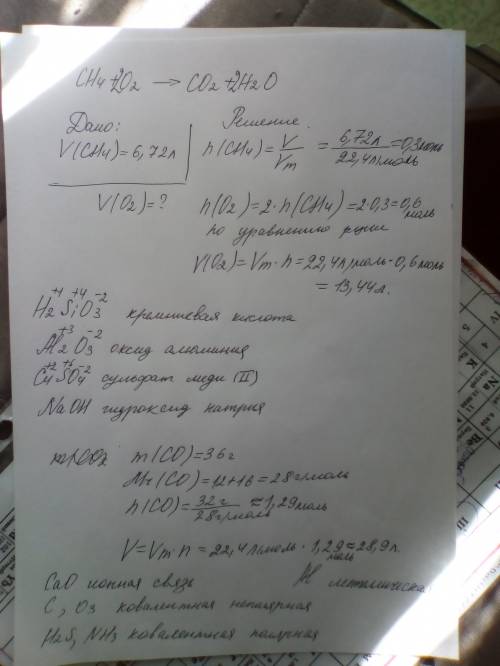 CH4+2O2 → CO2+2H2O
Дано:
V(CH4)=6,72л
V(O2)=?
Решение.
n(CH4)=V/Vm = 6,72л/22,4л/моль=0,3моль
n(O2)=2·n(CH4)=2·0,3=0,6 моль
по уравнению р-ции
V(O2)=Vm·n=22,4л/моль·0,6моль
= 13,44л.
+1 +4 -2
H2SiO3 кремниевая кислота
+3 -2
Al2O3 оксид алюминия
+2 +6 -2
CuSO4 сульфат меди (II)
NaOH гидроксид натрия
m(CO)=36г
Mr(CO)=12+16=28г/моль
n(CO)=32г/28г/моль≈1,29моль
V=Vm·n=22,4л/моль·1,29моль≈28,9л.
CaO ионная связь
Al металическая
C, O3 ковалентная неполярная
H2S, NH3 ковалентная полярная